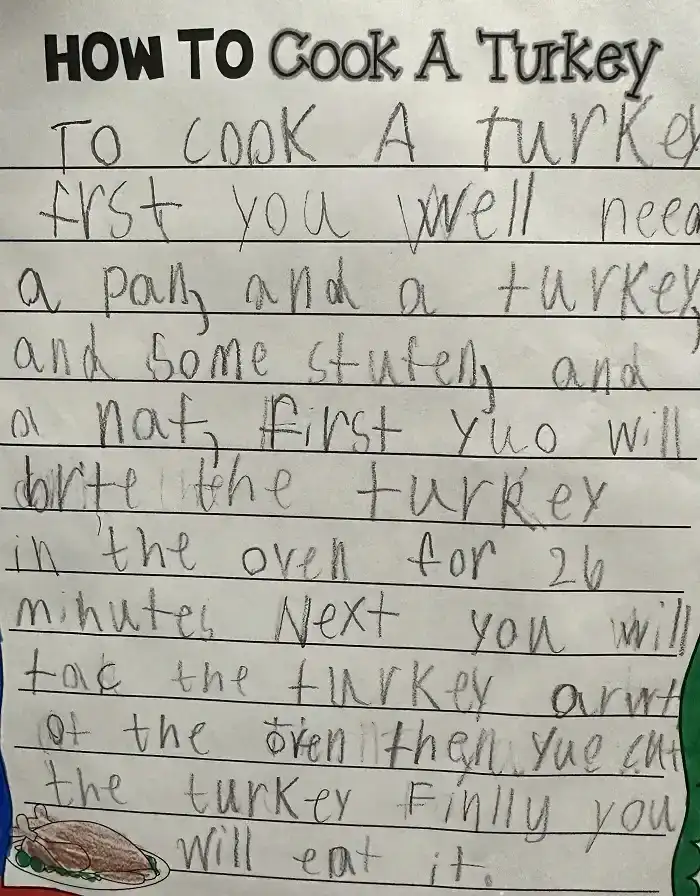 HOW TO Cook A Turkey
To cook A turkey
frst you well need
a pan, and a turkey,
and some stufen, and
a nat, first yuo will
brte the turkey
in the oven for 26
minutes Next you will
tac the turkey arwt
of the oven then yue cut
the turkey Finlly you
will eat it.